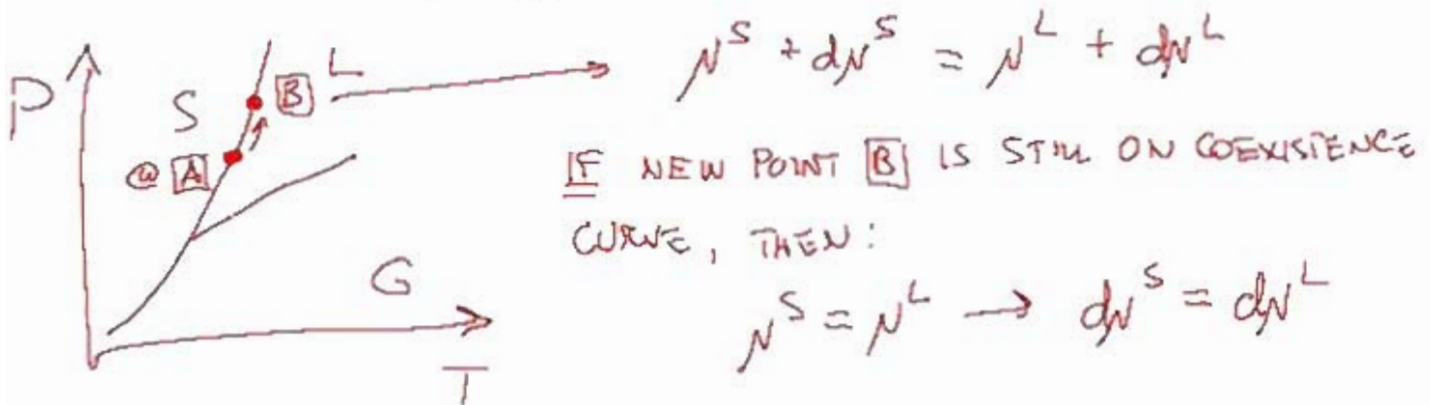 P
S
L
B
@ A
G
T
μ^S + dμ^S = μ^L + dμ^L
IF NEW POINT B IS STILL ON COEXISTENCE
CURVE, THEN:
μ^S = μ^L → dμ^S = dμ^L